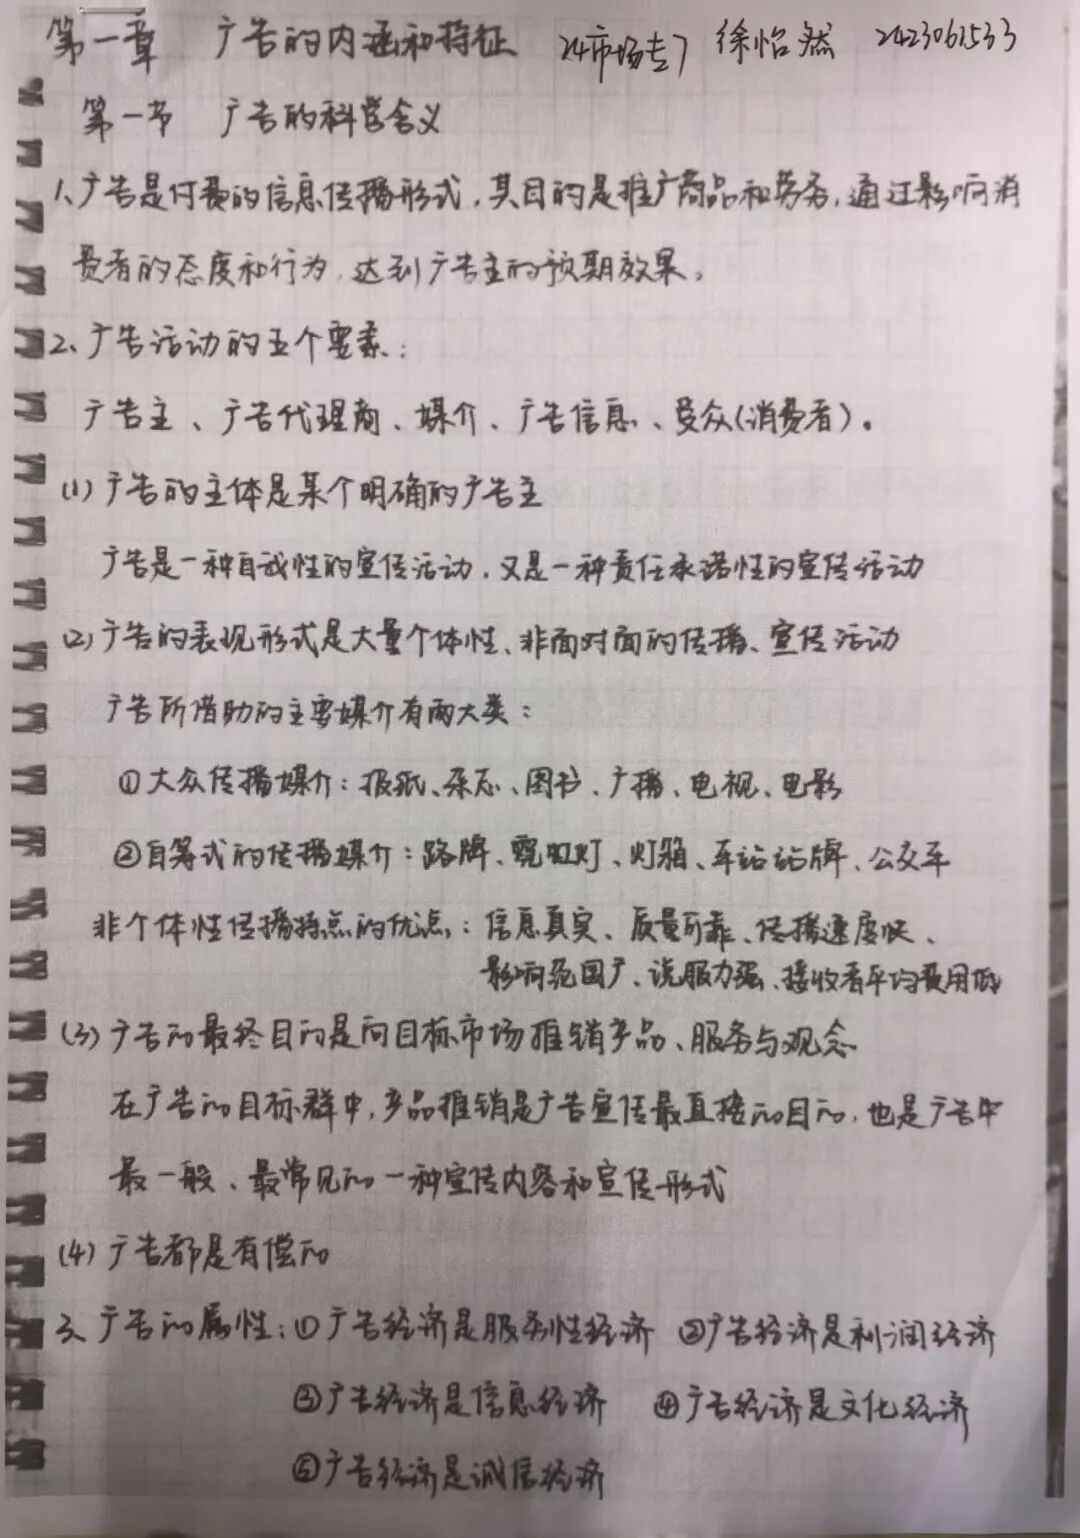 第一章 广告的内涵和特征 24市场专7 徐怡然 2423061533
第一节 广告的科学含义
1、广告是付费的信息传播形式，其目的是推广商品和劳务，通过影响消
费者的态度和行为，达到广告主的预期效果。
2、广告活动的五个要素：
广告主、广告代理商、媒介、广告信息、受众(消费者)。
(1)广告的主体是某个明确的广告主
广告是一种自我性的宣传活动，又是一种责任承诺性的宣传活动
(2)广告的表现形式是大量个体性、非面对面的传播、宣传活动
广告所借助的主要媒介有两大类：
①大众传播媒介：报纸、杂志、图书、广播、电视、电影
②自筹式的传播媒介：路牌、霓虹灯、灯箱、车站站牌、公交车
非个体性传播特点的优点：信息真实、质量可靠、传播速度快、
影响范围广、说服力强、接收者平均费用低
(3)广告的最终目的是向目标市场推销产品、服务与观念
在广告的目标群中，产品推销是广告宣传最直接的目的，也是广告中
最一般、最常见的一种宣传内容和宣传形式
(4)广告都是有偿的
3、广告的属性：①广告经济是服务性经济 ②广告经济是利润经济
③广告经济是信息经济 ④广告经济是文化经济
⑤广告经济是诚信经济